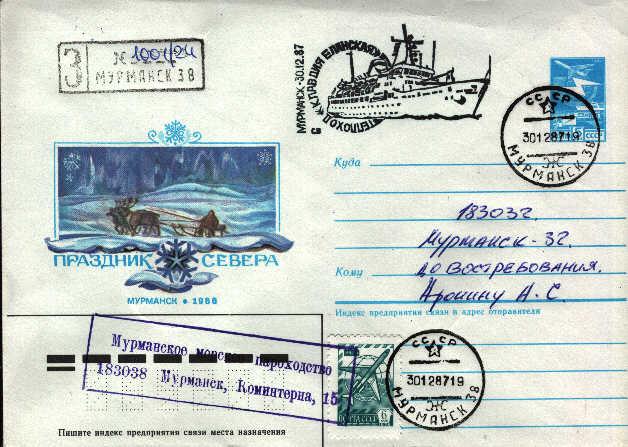 З
№ 1004/24
МУРМАНСК 38
МУРМАНСК-30.12.87
ТЕПЛОХОД КЛАВДИЯ ЕЛАНСКАЯ
СССР
30128719
МУРМАНСК 38
Ж
Куда
183032.
Мурманск-32.
до востребования.
Кому
Аронину А-С.
Индекс предприятия связи и адрес отправителя
ПРАЗДНИК СЕВЕРА
МУРМАНСК • 1986
Мурманское морское пароходство
183038 Мурманск, Коминтерна, 15
ПОЧТА СССР
6
СССР
30128719
МУРМАНСК 38
Ж
Пишите индекс предприятия связи места назначения